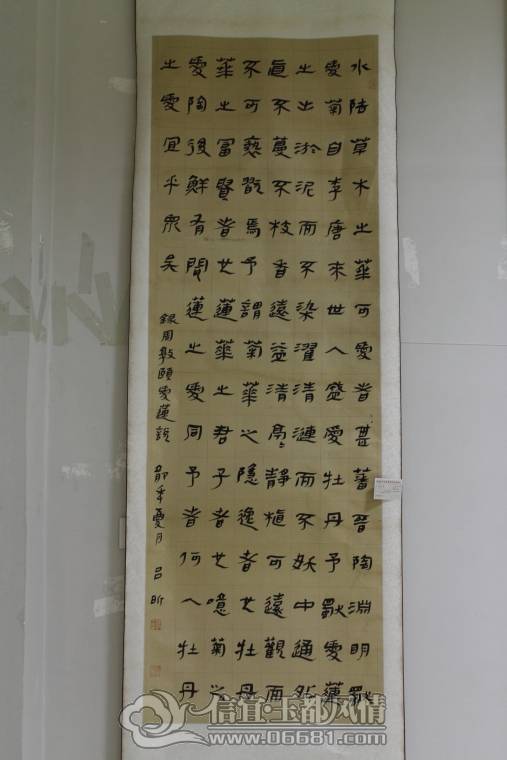 水陸草木之華可愛者甚蕃晉陶淵明獨
愛菊自李唐來世人盛愛牡丹予獨愛蓮
之出淤泥而不染濯清漣而不妖中通外
直不蔓不枝香遠益清亭〻靜植可遠觀而
不可褻翫焉予謂菊華之隱逸者也牡丹
華之富貴者也蓮華之君子者也噫菊之
愛陶後鮮有聞蓮之愛同予者何人牡丹
之愛宜乎眾矣
錄周敦頤愛蓮說 夏月 呂昕
信宜·玉都风情
www.06681.com